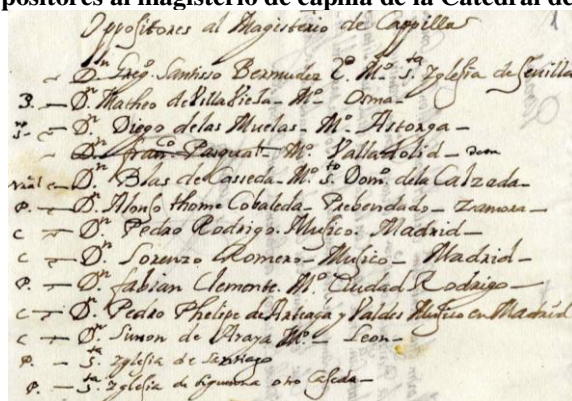 positores al magisterio de capilla de la Catedral de
1
Oppositores al Magisterio de Cappilla
– Dn. Greg.o Santisso Bermudez C. Mo. Sta. Yglesia de Seuilla
3. – Dn. Matheo de Villa Viesa – Mo. – Osma –
– Dn. Diego de las Muelas – Mo. Astorga –
– Dn. Fran.co Pasqual – Mo. Valladolid –
– Dn. Blas de Casseda – Mo. Sto. Domo. de la Calzada –
P. – D. Alonso thome Cobaleda – Prebendado – Zamora –
C – Dn. Pedro Rodrigo. Musico. Madrid –
C – Dn. Lorenzo Romero – Musico – Madrid –
P. – Dn. fabian Clemente. Mo. Ciudad Rodrigo –
C – Dn. Pedro Phelipe de Arteaga y Valdes Musico en Madrid
C – Dn. Simon de Araya Mo. – Leon –
P. – Sta. Yglesia de Santiago
P. – Sta. Yglesia de Siguenza otro Caseda –